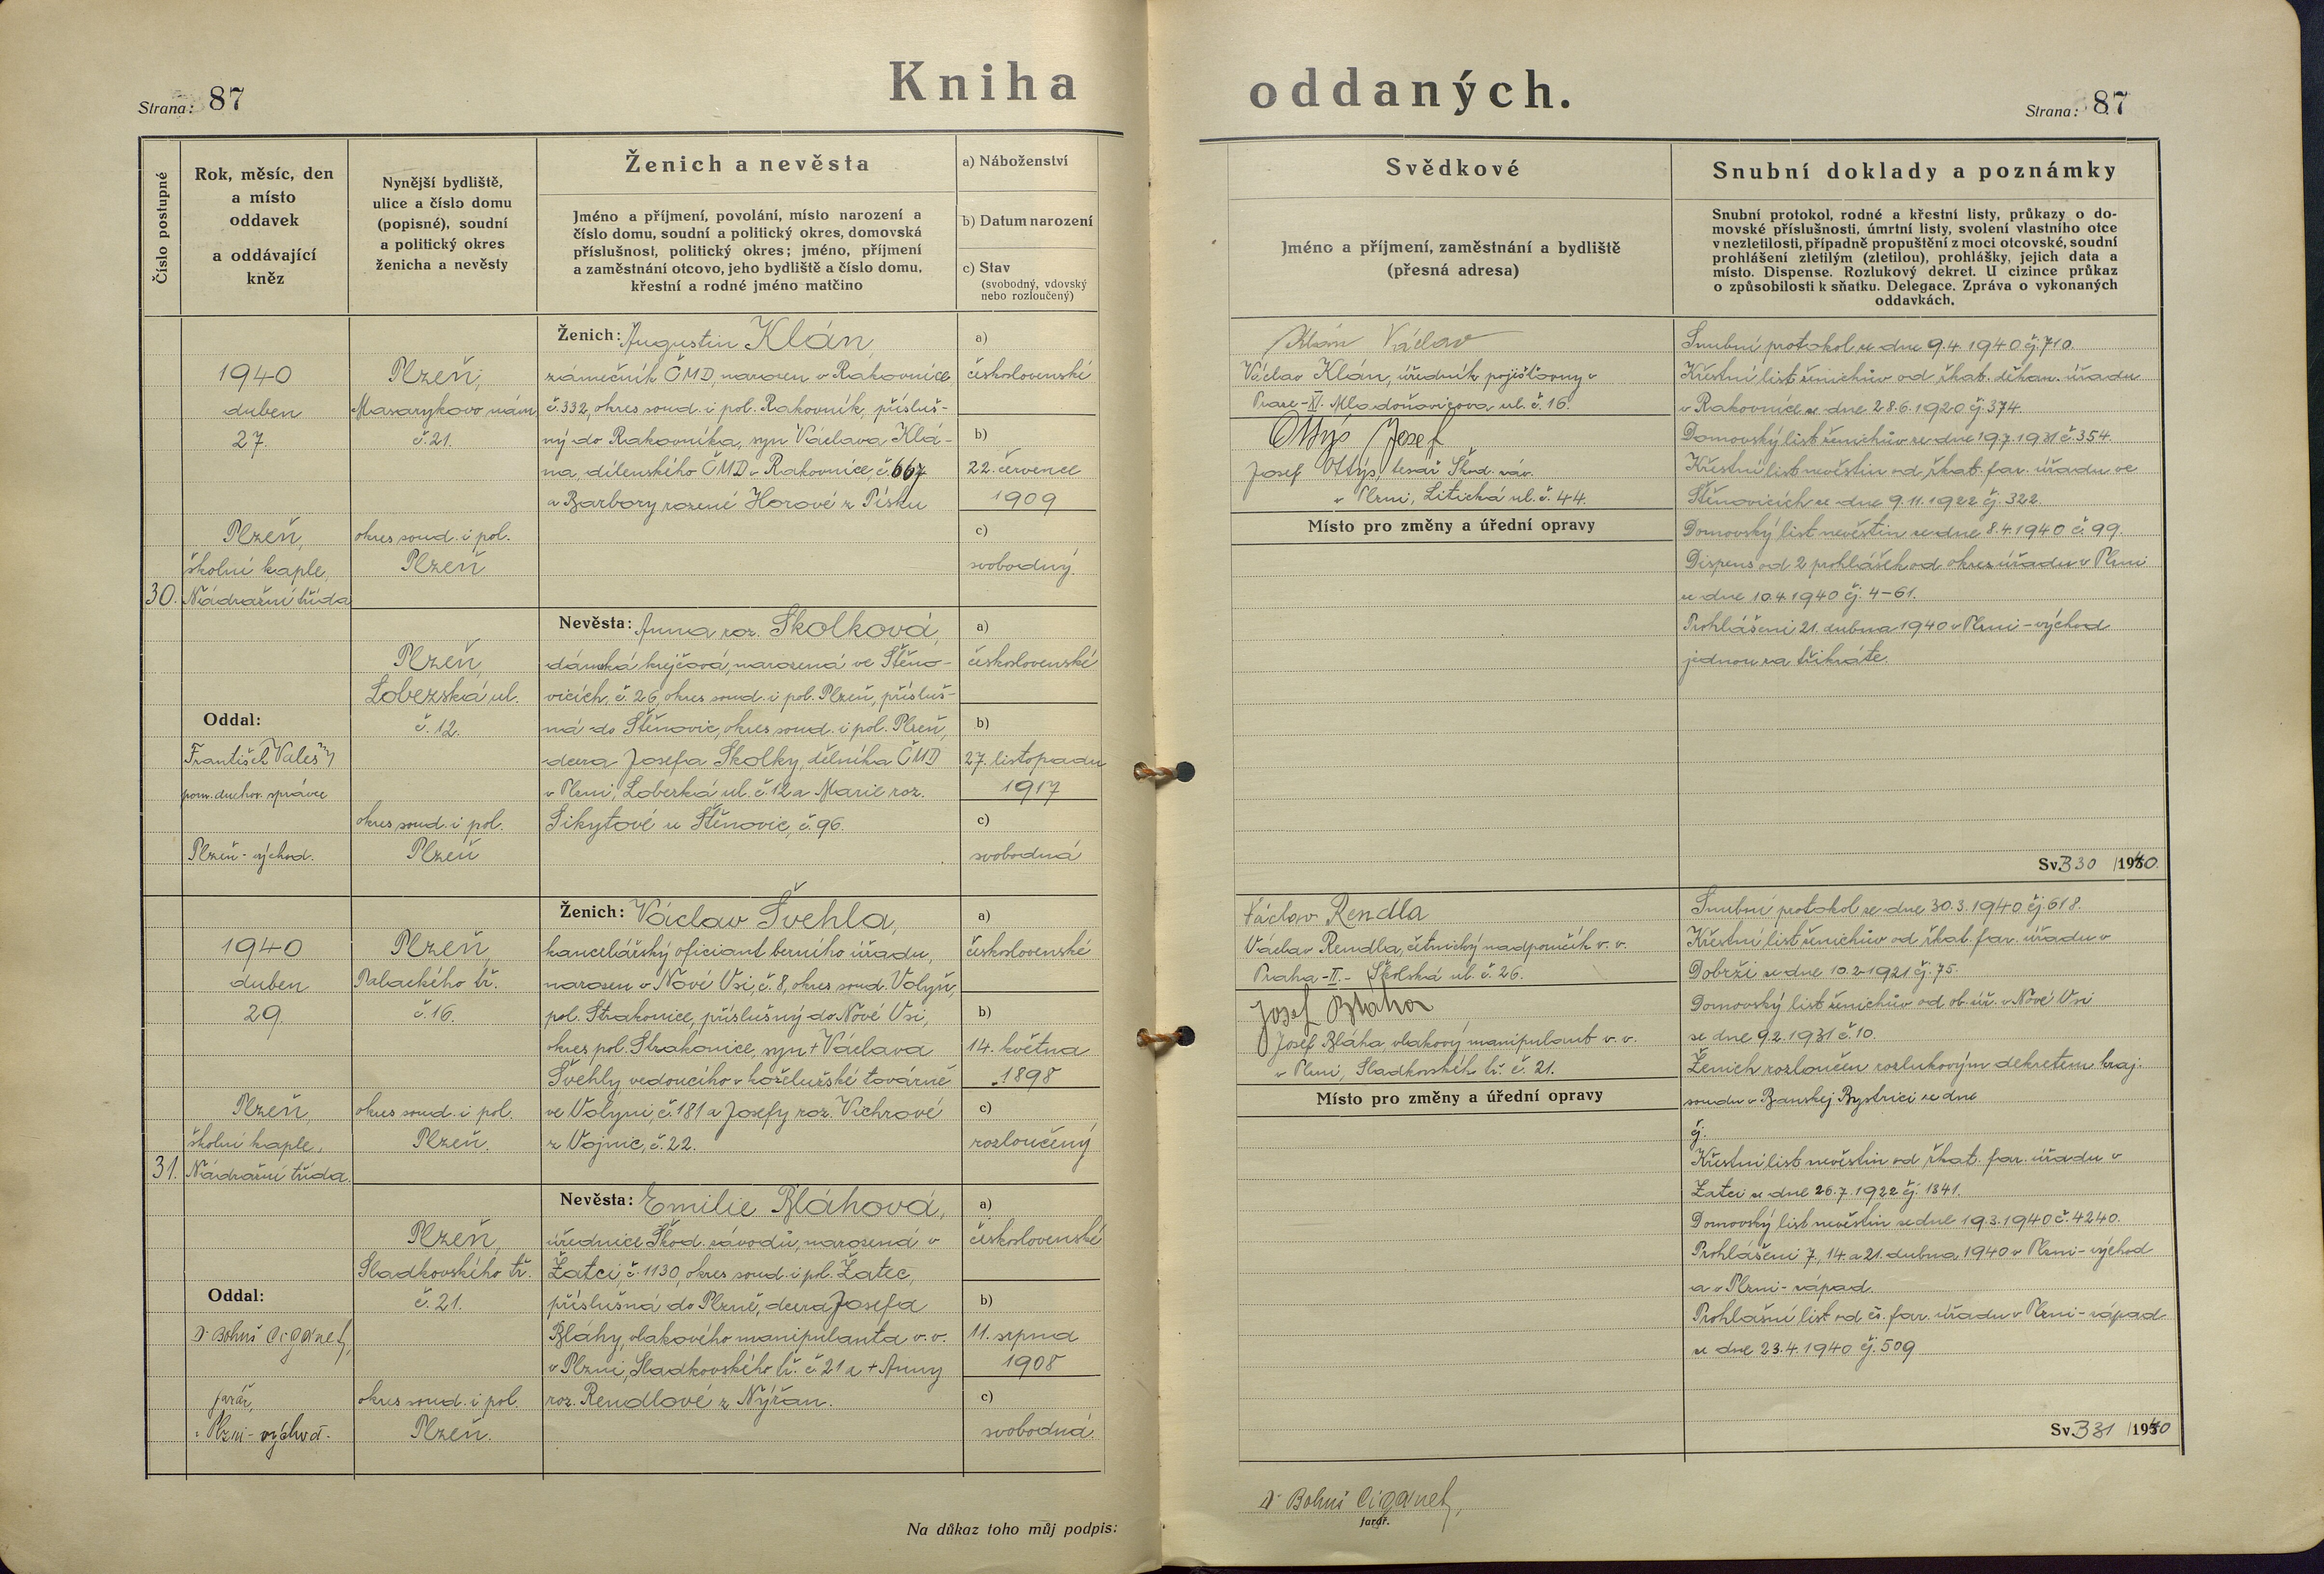 Kniha oddaných.
Strana: 87
Strana: 87
Číslo postupné
Rok, měsíc, den
a místo
oddavek
a oddávající
kněz
Nynější bydliště,
ulice a číslo domu
(popisné), soudní
a politický okres
ženicha a nevěsty
Ženich a nevěsta
Jméno a příjmení, povolání, místo narození a
číslo domu, soudní a politický okres, domovská
příslušnost, politický okres; jméno, příjmení
a zaměstnání otcovo, jeho bydliště a číslo domu,
křestní a rodné jméno matčino
a) Náboženství
b) Datum narození
c) Stav
(svobodný, vdovský
nebo rozloučený)
Svědkové
Jméno a příjmení, zaměstnání a bydliště
(přesná adresa)
Snubní doklady a poznámky
Snubní protokol, rodné a křestní listy, průkazy o do-
movské příslušnosti, úmrtní listy, svolení vlastního otce
v nezletilosti, případně propuštění z moci otcovské, soudní
prohlášení zletilým (zletilou), prohlášky, jejich data a
místo. Dispense. Rozlukový dekret. U cizince průkaz
o způsobilosti k sňatku. Delegace. Zpráva o vykonaných
oddavkách.
30.
1940
duben
27.
Plzeň,
školní kaple,
Nádražní třída
Oddal:
František Valeš
pom. duchov. správce
Plzeň - východ.
Plzeň,
Masarykovo nám.
č. 21.
okres soud. i pol.
Plzeň
Ženich: Augustin Klán,
zámečník ČMD, narozen v Rakovníce,
č. 332, okres soud. i pol. Rakovník, přísluš-
ný do Rakovníka, syn Václava Klá-
na, dílenského ČMD v Rakovníce č. 667
a Barbory rozené Horové z Písku
a)
československé
b)
22. července
1909
c)
svobodný.
Plzeň,
Lobezská ul.
č. 12.
okres soud. i pol.
Plzeň
Nevěsta: Anna roz. Skolková,
dámská krejčová, narozená ve Štěno-
vicích, č. 26, okres soud. i pol. Plzeň, přísluš-
ná do Štěnovic, okres soud. i pol. Plzeň,
dcera Josefa Skolky, dělníka ČMD
v Plzni, Lobezská ul. č. 12 a Marie roz.
Sikytové z Štěnovic, č. 96.
a)
československé
b)
27. listopadu
1917
c)
svobodná
Klán Václav
Václav Klán, úředník pojišťovny v
Praze-XI. Mladoňovicova ul. č. 16.
Ottys Josef
Josef Ottys, tesař Škod. záv.
v Plzni, Litická ul. č. 44.
Místo pro změny a úřední opravy
Snubní protokol ze dne 9.4.1940 čj. 710.
Křestní list ženichův od řkat. děkan. úřadu
v Rakovníce ze dne 28.6.1920 čj. 374.
Domovský list ženichův ze dne 19.7.1931 č. 354.
Křestní list nevěstin od řkat. far. úřadu ve
Štěnovicích ze dne 9.11.1922 čj. 322.
Domovský list nevěstin ze dne 8.4.1940 č. 99.
Dispens od 2 prohlášek od okres. úřadu v Plzni
ze dne 10.4.1940 čj. 4-61.
Prohlášeni 21. dubna 1940 v Plzni - východ
jednou za třikráte.
Sv. 330 /1940.
31.
1940
duben
29.
Plzeň,
školní kaple,
Nádražní třída.
Oddal:
Dr Bohuš Cigánek,
farář,
v Plzni - východ.
Plzeň,
Palackého tř.
č. 16.
okres soud. i pol.
Plzeň.
Ženich: Václav Švehla,
kancelářský oficiant berního úřadu,
narozen v Nové Vsi, č. 8, okres soud. Volyň,
pol. Strakonice, příslušný do Nové Vsi,
okres pol. Strakonice, syn + Václava
Švehly, vedoucího v koželužské továrně
ve Volyni, č. 181 a Josefy roz. Vichrové
z Vojnic, č. 22.
a)
československé
b)
14. května
1898
c)
rozloučený
Plzeň,
Sladkovského tř.
č. 21.
okres soud. i pol.
Plzeň.
Nevěsta: Emilie Bláhová,
úřednice Škod. závodů, narozená v
Žatci, č. 1130, okres soud. i pol. Žatec,
příslušná do Plzně, dcera Josefa
Bláhy, vlakového manipulanta v. v.
v Plzni, Sladkovského tř. č. 21 a + Anny
roz. Rendlové z Nýřan.
a)
československé
b)
11. srpna
1908
c)
svobodná.
Václav Rendla
Václav Rendla, četnický nadporučík v. v.
Praha-II.- Školská ul. č. 26.
Josef Bláha
Josef Bláha, vlakový manipulant v. v.
v Plzni, Sladkovského tř. č. 21.
Místo pro změny a úřední opravy
Snubní protokol ze dne 30.3.1940 čj. 618.
Křestní list ženichův od řkat. far. úřadu v
Dobrži ze dne 10.2.1921 čj. 75.
Domovský list ženichův od ob. úř. v Nové Vsi
ze dne 9.2.1931 č. 10.
Ženich rozloučen rozlukovým dekretem kraj.
soudu v Banskej Bystrici ze dne
čj.
Křestní list nevěstin od řkat. far. úřadu v
Žatci ze dne 26.7.1922 čj. 1841.
Domovský list nevěstin ze dne 19.3.1940 č. 4240.
Prohlášeni 7., 14. a 21. dubna 1940 v Plzni - východ
a v Plzni - západ.
Prohlašní list od čs. far. úřadu v Plzni - západ
ze dne 23.4.1940 čj. 509
Sv. 331 /1940
Na důkaz toho můj podpis:
Dr Bohuš Cigánek,
farář.